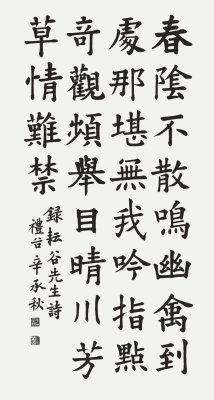 春陰不散鳴幽禽到
處那堪無我吟指點
奇觀頻舉目晴川芳
草情難禁
錄耘谷先生詩
禮台辛承秋